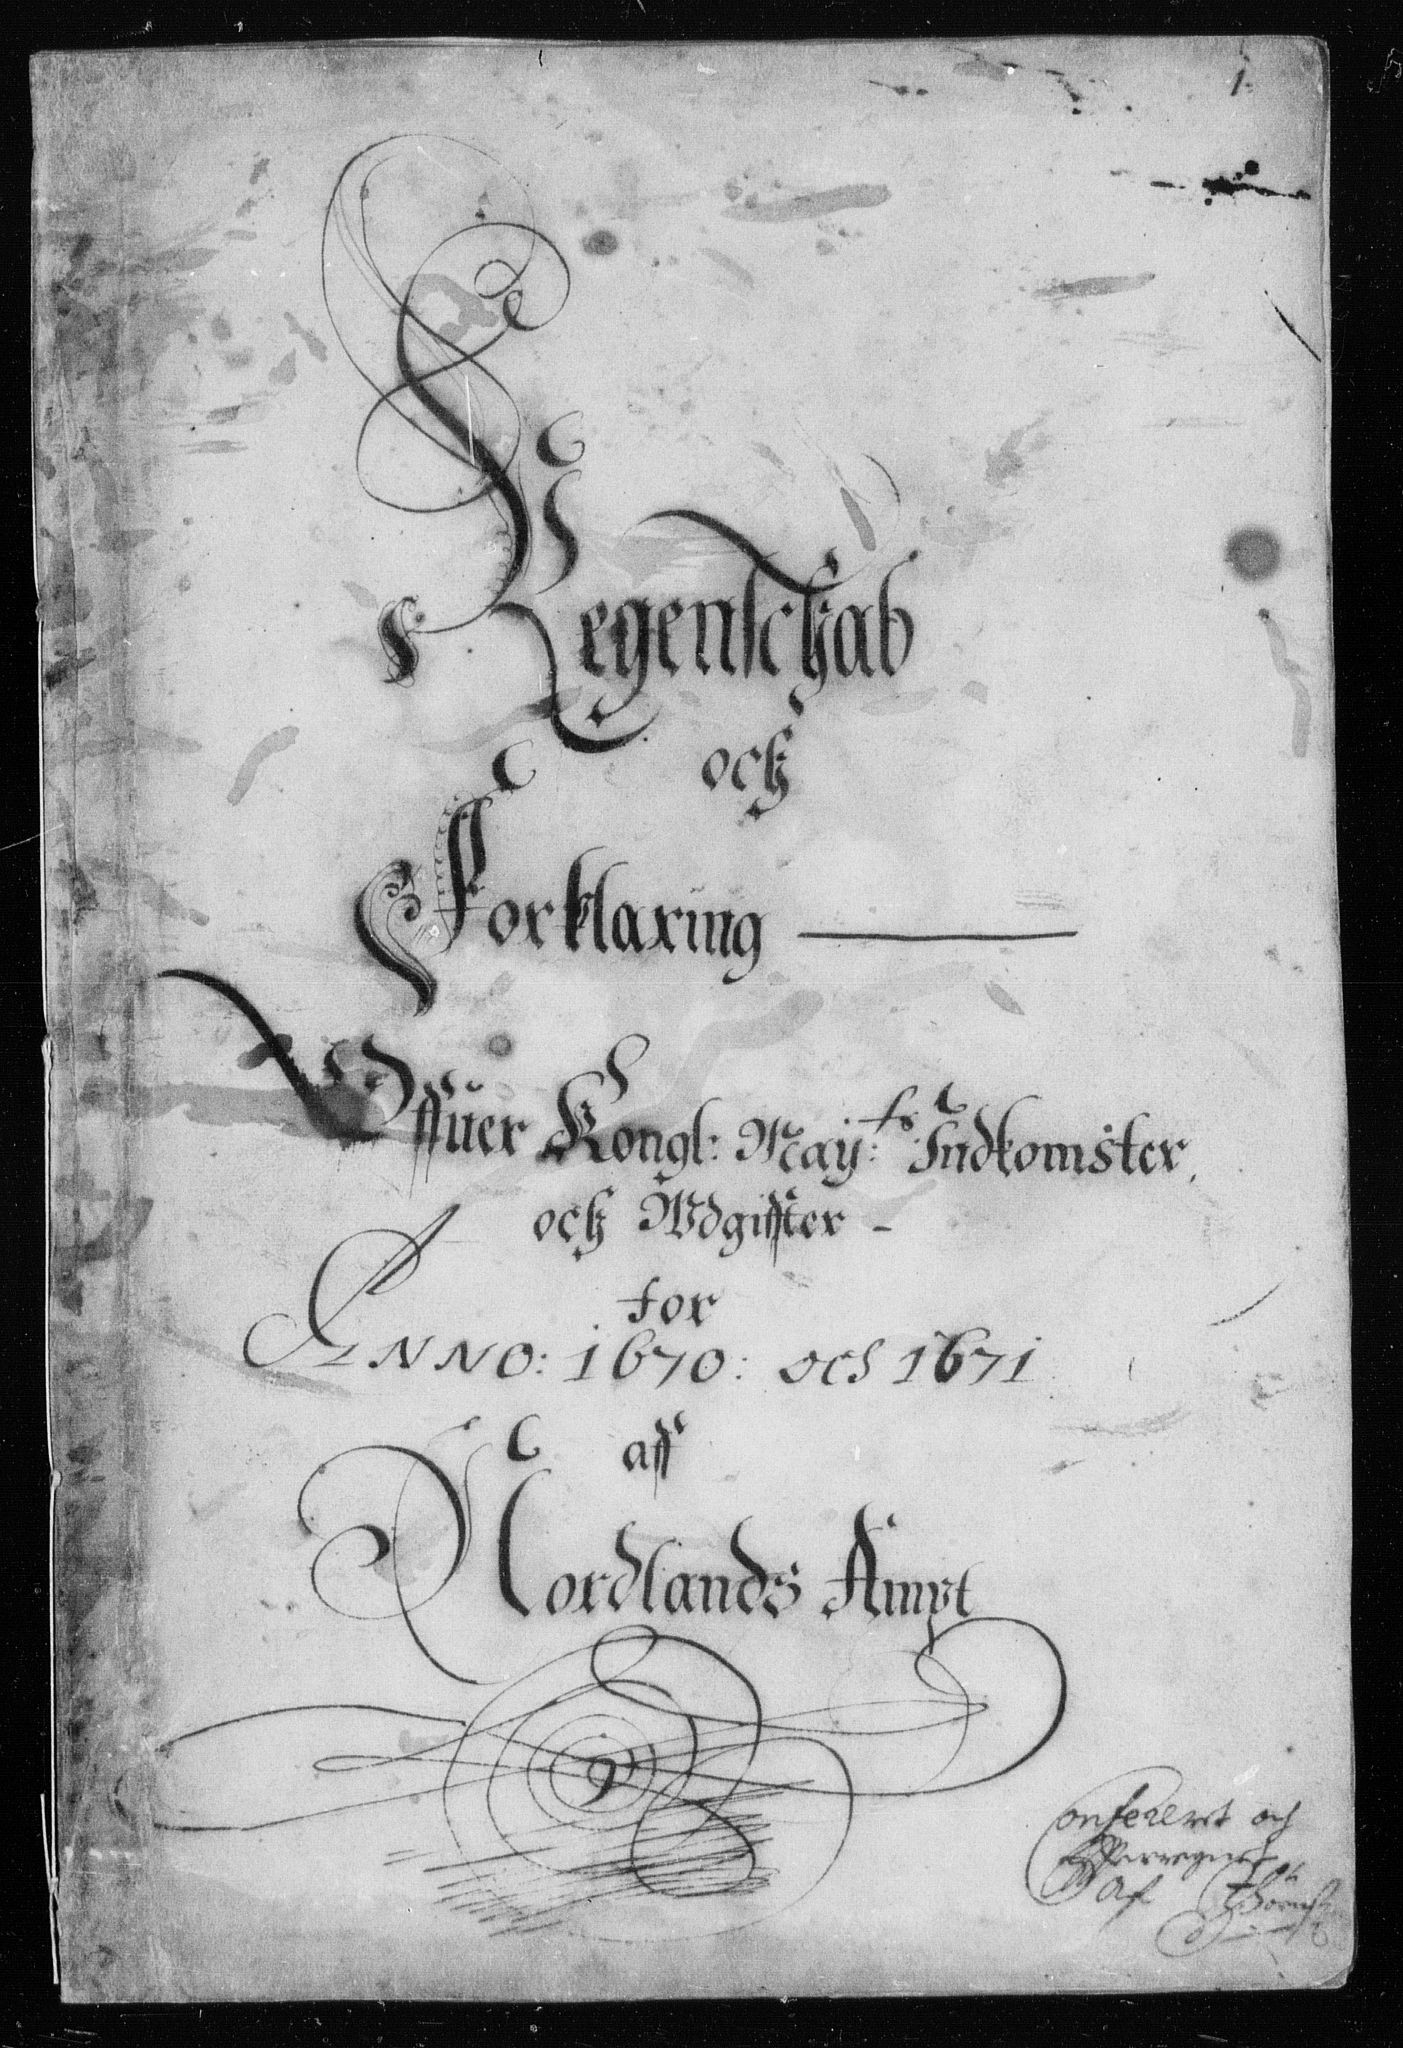 1.
Regenschab
och
Forklaring
Offuer Kongl: May:ts Indkomster,
och Wdgiffter -
for
ANNO: 1670: och 1671
aff
Nordlands Ampt
Confereret och
Af